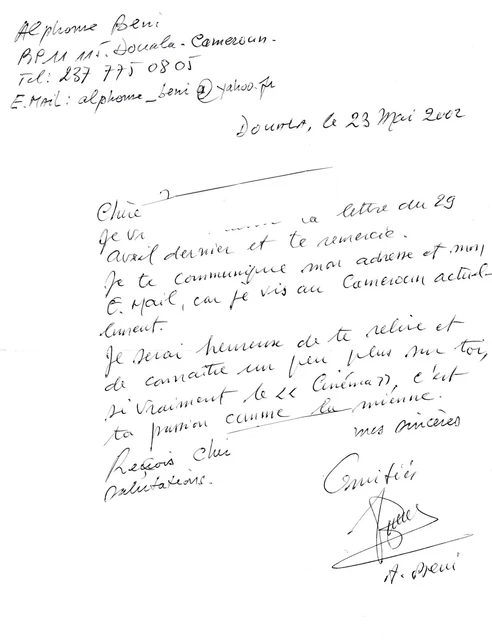 Alphonse Beni
BP 11 115. Douala. Cameroun.
Tel: 237 775 08 05
E.MAIL: alphonse_beni@yahoo.fr
Douala, le 23 Mai 2002
Chère
la lettre du 29
avril dernier et te remercie.
Je te communique mon adresse et mon
E.Mail, car je vis au Cameroun actuel-
lement.
Je serai heureux de te relire et
de connaître un peu plus sur toi,
si vraiment le << Cinéma >>, c'est
ta passion comme la mienne.
Reçois mes sincères
salutations.
Amitiés
A. Beni